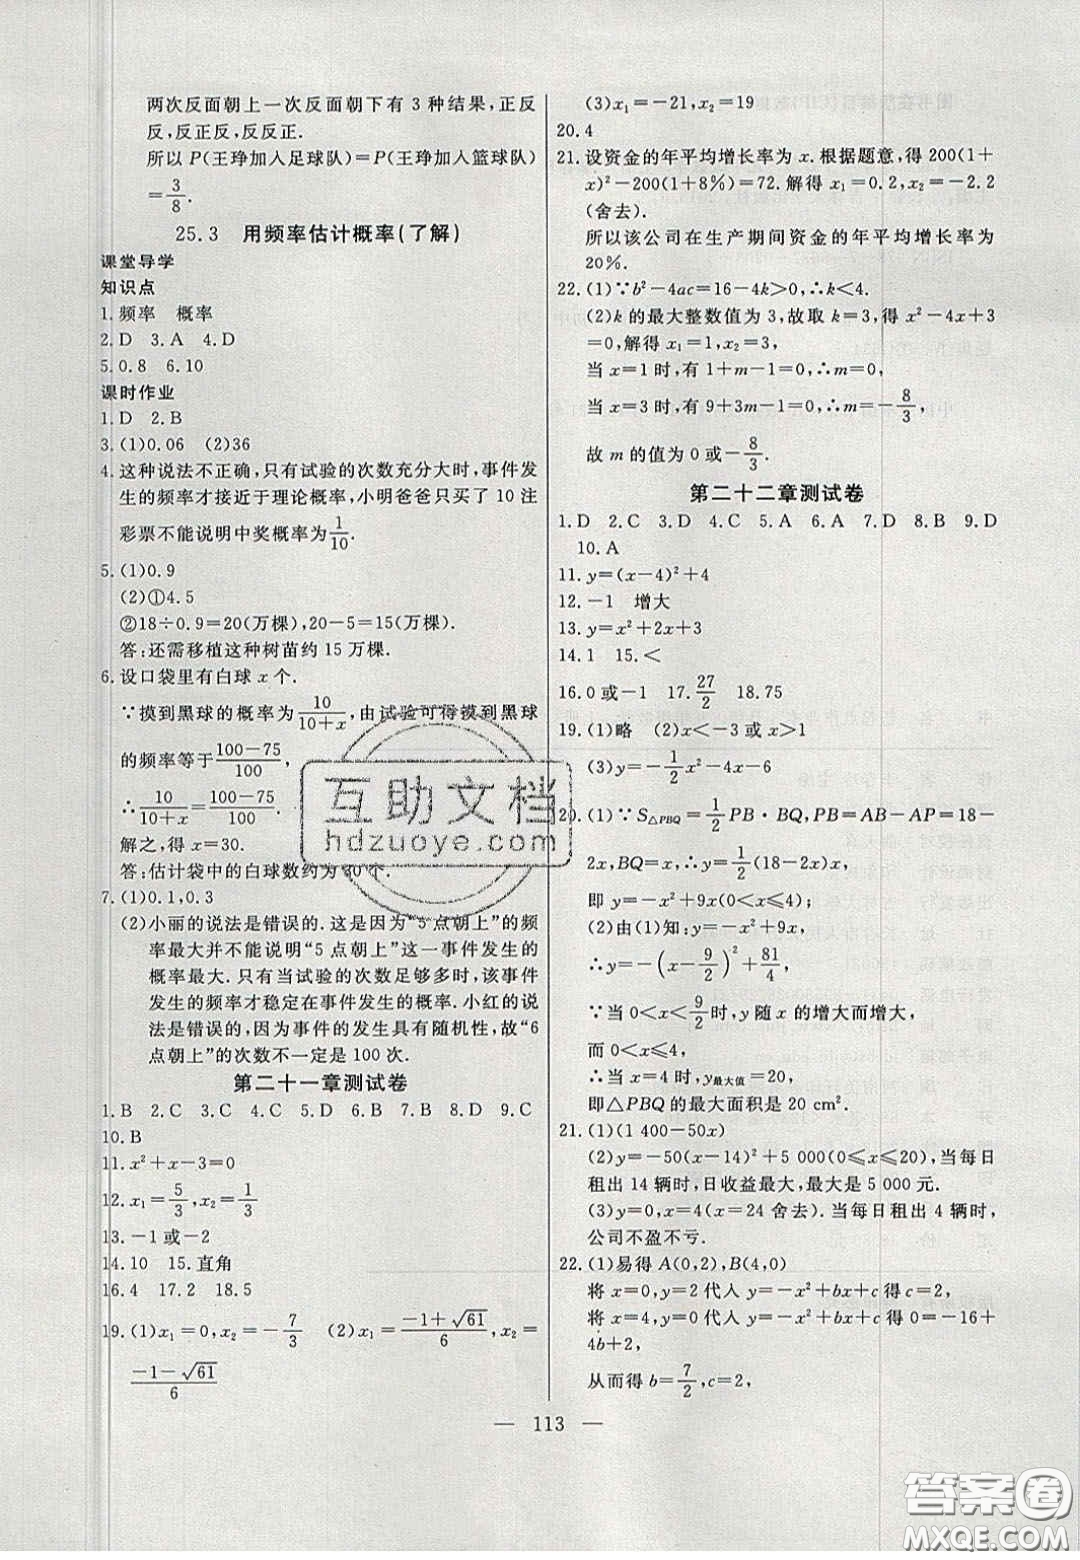 两次反面朝上一次反面朝下有3种结果,正反
反,反正反,反反正.
所以 P(王琤加入足球队)=P(王琤加入篮球队)
=3/8.
25.3 用频率估计概率(了解)
课堂导学
知识点
1.频率 概率
2.D 3.A 4.D
5.0.8 6.10
课时作业
1.D 2.B
3.(1)0.06 (2)36
4.这种说法不正确,只有试验的次数充分大时,事件发
生的频率才接近于理论概率,小明爸爸只买了10注
彩票不能说明中奖概率为1/10.
5.(1)0.9
(2)①4.5
②18÷0.9=20(万棵),20-5=15(万棵).
答:还需移植这种树苗约15万棵.
6.设口袋里有白球x个.
∵摸到黑球的概率为10/(10+x),由试验可得摸到黑球
的频率等于(100-75)/100,
∴10/(10+x)=(100-75)/100.
解之,得x=30.
答:估计袋中的白球数约为30个.
7.(1)0.1,0.3
(2)小丽的说法是错误的.这是因为“5点朝上”的频
率最大并不能说明“5点朝上”这一事件发生的
概率最大.只有当试验的次数足够多时,该事件
发生的频率才稳定在事件发生的概率.小红的说
法是错误的,因为事件的发生具有随机性,故“6
点朝上”的次数不一定是100次.
第二十一章测试卷
1.B 2.C 3.C 4.C 5.D 6.B 7.B 8.D 9.C
10.B
11.x²+x-3=0
12.x₁=5/3,x₂=1/3
13.-1或-2
14.10 15.直角
16.4 17.2 18.5
19.(1)x₁=0,x₂=-7/3 (2)x₁=(-1+√61)/6,x₂=
(-1-√61)/6
(3)x₁=-21,x₂=19
20.4
21.设资金的年平均增长率为x.根据题意,得200(1+
x)²-200(1+8%)=72.解得x₁=0.2,x₂=-2.2
(舍去).
所以该公司在生产期间资金的年平均增长率为
20%.
22.(1)∵b²-4ac=16-4k>0,∴k<4.
(2)k的最大整数值为3,故取k=3,得x²-4x+3
=0,解得x₁=1,x₂=3,
当x=1时,有1+m-1=0,∴m=0,
当x=3时,有9+3m-1=0,∴m=-8/3,
故m的值为0或-8/3.
第二十二章测试卷
1.D 2.C 3.D 4.C 5.A 6.A 7.D 8.B 9.D
10.A
11.y=(x-4)²+4
12.-1 增大
13.y=x²+2x+3
14.1 15.<
16.0或-1 17.27/2 18.75
19.(1)略 (2)x<-3或x>1
(3)y=-1/2x²-4x-6
20.(1)∵S△PBQ=1/2PB·BQ,PB=AB-AP=18-
2x,BQ=x,∴y=1/2(18-2x)x,
即y=-x²+9x(0<x≤4);
(2)由(1)知:y=-x²+9x,
∴y=-(x-9/2)²+81/4,
∵当0<x<9/2时,y随x的增大而增大,
而0<x≤4,
∴当x=4时,y最大值=20,
即△PBQ的最大面积是20 cm².
21.(1)(1 400-50x)
(2)y=-50(x-14)²+5 000(0≤x≤20),当每日
租出14辆时,日收益最大,最大是5 000元.
(3)y=0,x=4(x=24舍去).当每日租出4辆时,
公司不盈不亏.
22.(1)易得A(0,2),B(4,0)
将x=0,y=2代入y=-x²+bx+c得c=2,
将x=4,y=0代入y=-x²+bx+c得0=-16+
4b+2,
从而得b=7/2,c=2,
— 113 —
互助文档
hdzuoye.com
答案圈
MXQE.COM